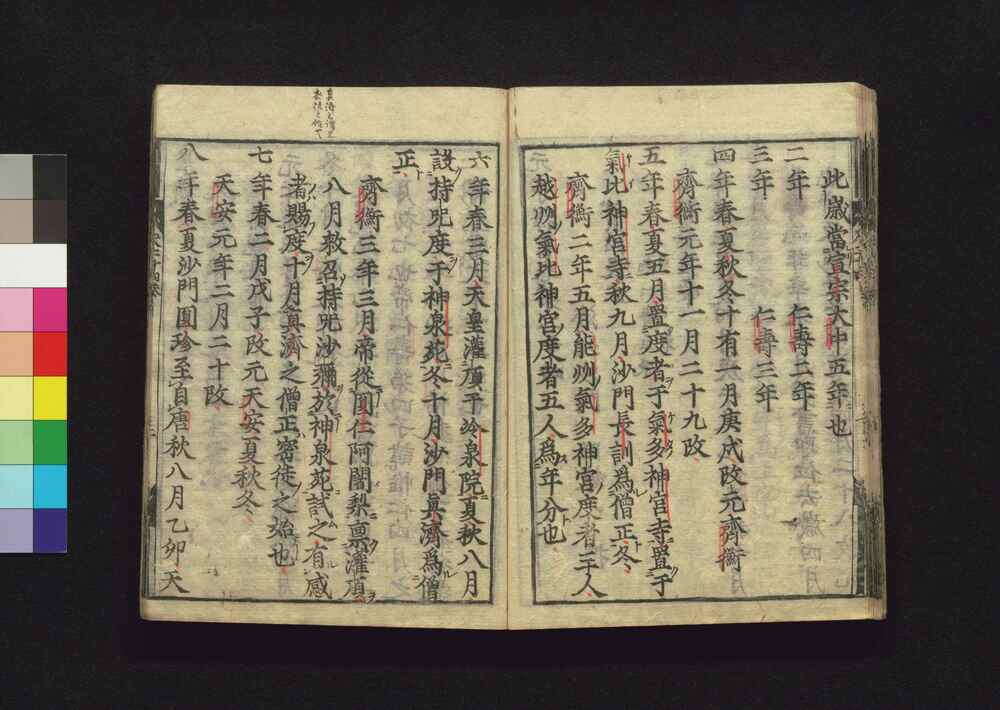 此歲當宣宗大中五年也
二年　仁壽二年
三年　仁壽三年
四年春夏秋冬十有一月庚戌改元齊衡
齊衡元年十一月二十九改
五年春夏五月置度者于氣多神宮寺置于
氣比神宮寺秋九月沙門長訓爲僧正冬
齊衡二年五月能州氣多神宮度者三人
越州氣比神宮度者五人爲年分也
六年春三月天皇灌頂于冷泉院夏秋八月
設持咒度于神泉苑冬十月沙門真濟爲僧
正
齊衡三年三月帝從圓仁阿闍梨禀灌頂
八月敕召持咒沙彌於神泉苑試之有感
者賜度十月真濟之僧正密徒之始也
七年春二月戊子改元天安夏秋冬
天安元年二月二十改
八年春夏沙門圓珍至自唐秋八月乙卯天